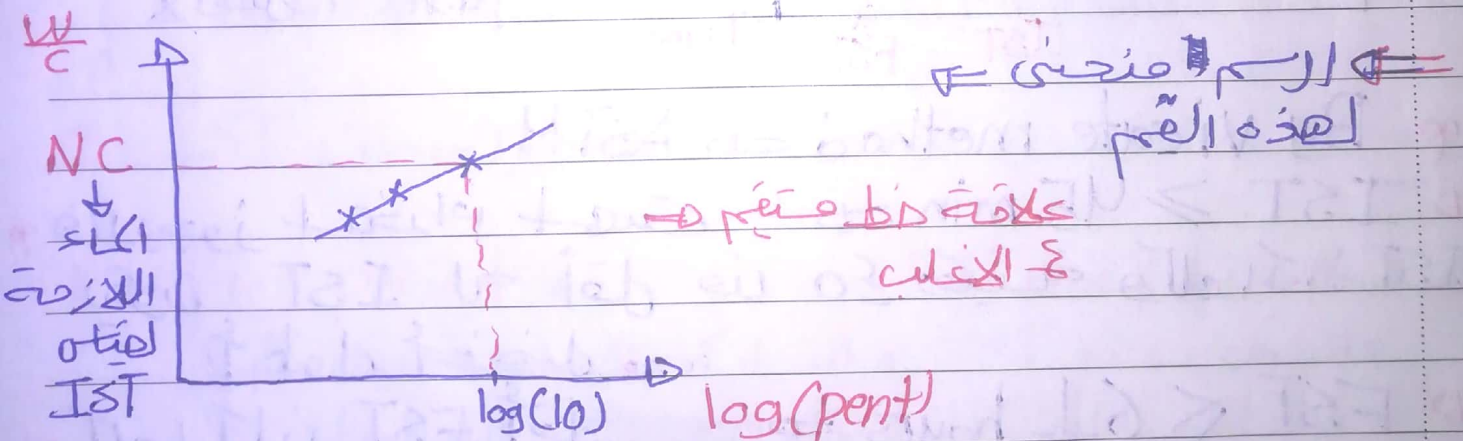 W/C
⇐ الرسم منحنى ⇐
لهذه القيم
NC
↓
الماء
اللازمة
لقياس
IST
علاقة خط مستقيم ⇒
ع الاغلب
log(10)
log(pent)